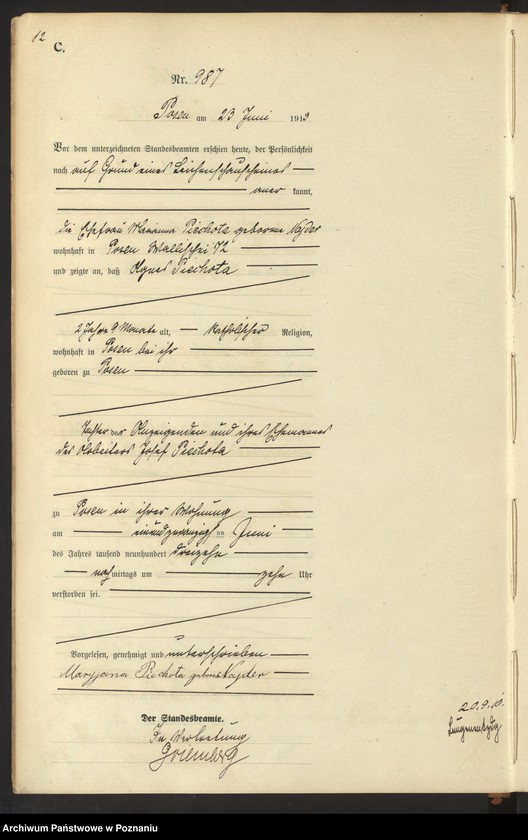 12
C.
Nr. 987
Posen am 23 Juni 1913
Vor dem unterzeichneten Standesbeamten erschien heute, der Persönlichkeit
nach auf Grund eines Leichenschauscheines
aner kannt,
die Ehefrau Marianna Piechota geborene Najder
wohnhaft in Posen Wallischei 72
und zeigte an, daß Agnes Piechota
2 Jahre 9 Monate alt, katholischer Religion,
wohnhaft in Posen bei ihr
geboren zu Posen
Tochter der Anzeigenden und ihres Ehemannes
des Arbeiters Josef Piechota
zu Posen in ihrer Wohnung
am einundzwanzigsten Juni
des Jahres tausend neunhundert dreizehn
nachmittags um zehn Uhr
verstorben sei.
Vorgelesen, genehmigt und unterschrieben
Maryjana Piechota geborene Najder
Der Standesbeamte.
In Vertretung
20.9.10.
Archiwum Państwowe w Poznaniu